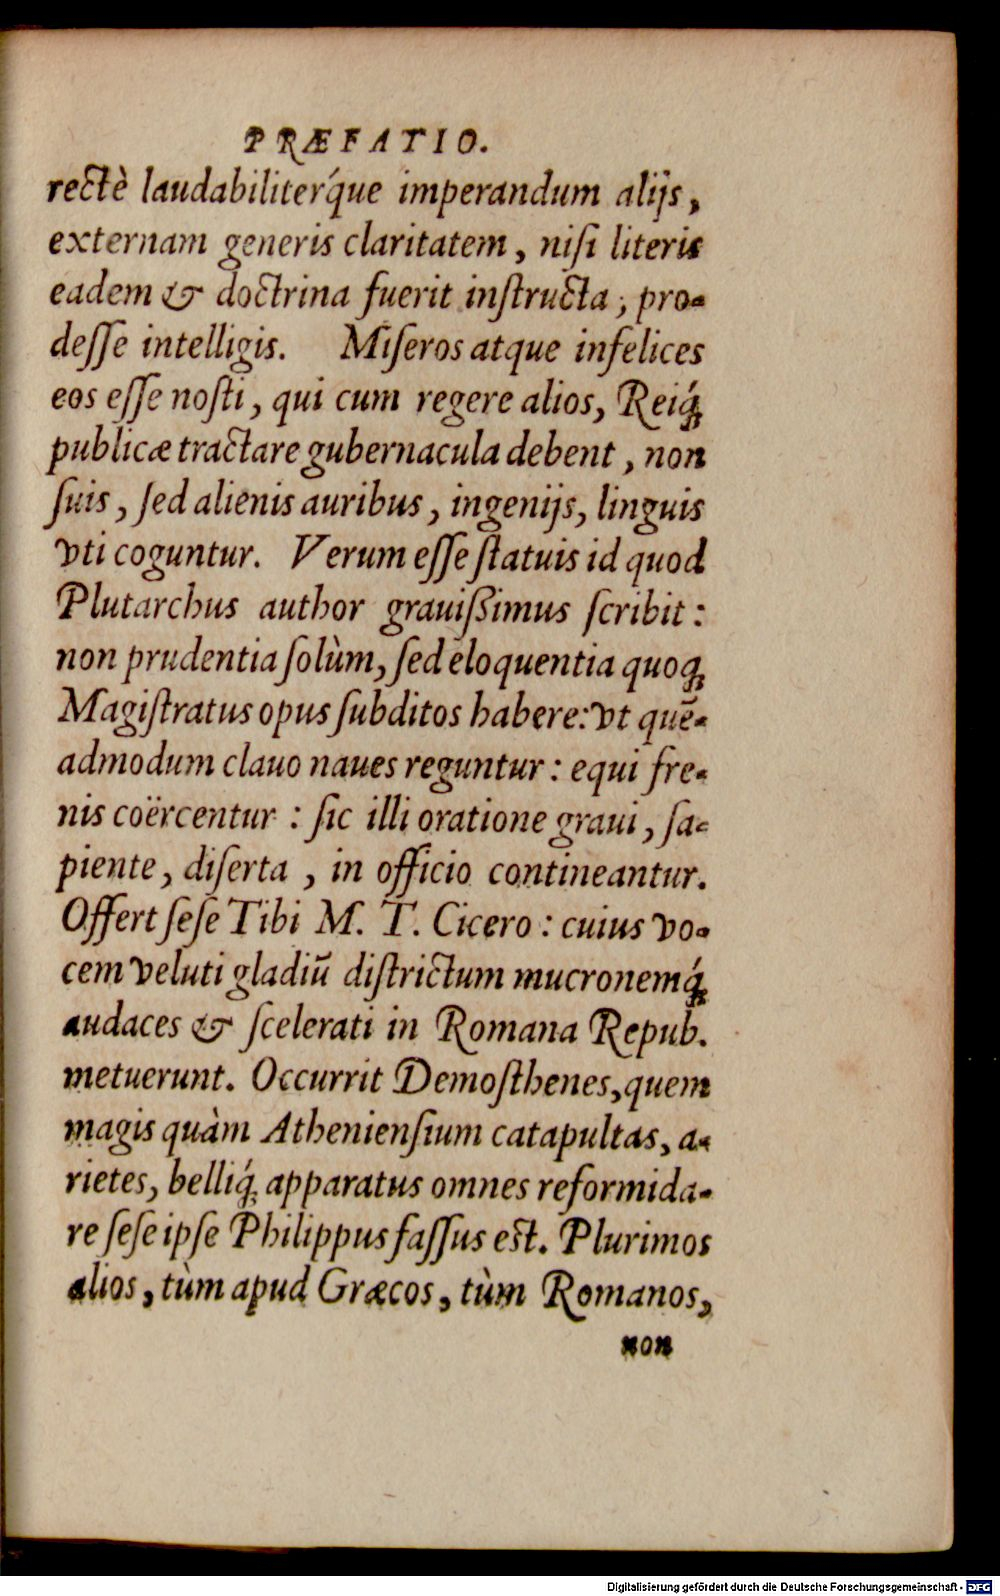 PRÆFATIO.
rectè laudabiliteŕque imperandum alijs,
externam generis claritatem, niſi literis
eadem & doctrina fuerit inſtructa, pro-
deſſe intelligis. Miſeros atque infelices
eos eſſe noſti, qui cum regere alios, Reiq́;
publicæ tractare gubernacula debent, non
ſuis, ſed alienis auribus, ingenijs, linguis
vti coguntur. Verum eſſe ſtatuis id quod
Plutarchus author grauißimus ſcribit:
non prudentia ſolùm, ſed eloquentia quoq;
Magiſtratus opus ſubditos habere: vt quē-
admodum clauo naues reguntur: equi fre-
nis coërcentur: ſic illi oratione graui, ſa-
piente, diſerta, in officio contineantur.
Offert ſeſe Tibi M. T. Cicero: cuius vo-
cem veluti gladiū diſtrictum mucronemq́;
audaces & ſcelerati in Romana Repub.
metuerunt. Occurrit Demoſthenes, quem
magis quàm Athenienſium catapultas, a-
rietes, belliq́; apparatus omnes reformida-
re ſeſe ipſe Philippus faſſus eſt. Plurimos
alios, tùm apud Græcos, tùm Romanos,
non
Digitalisierung gefördert durch die Deutsche Forschungsgemeinschaft - DFG